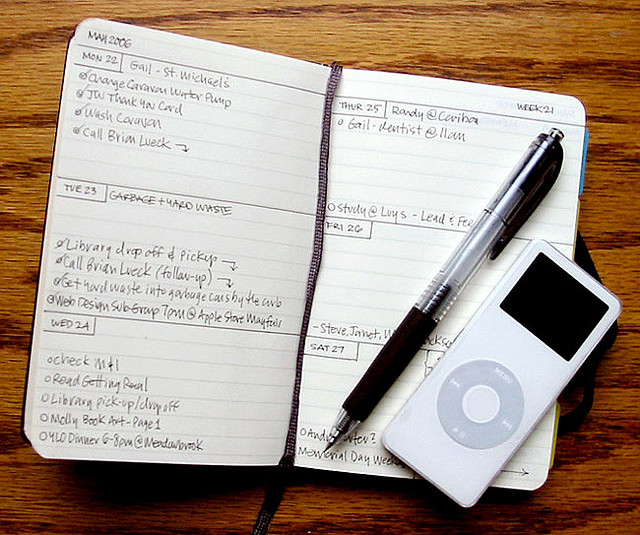 MAY 2006
MON 22 Gail - St. Michael's
Change Caravan Water Pump
JW Thank You Card
Wash Caravan
Call Brian Lueck
TUE 23 GARBAGE + YARD WASTE
Library drop off & pickup
Call Brian Lueck (follow-up)
Get yard waste into garbage cans by the curb
Web Design Sub-Group 7pm @ Apple Store Mayfair
WED 24
check M+1
Read Getting Real
Library pick-up/dropoff
Molly Book Art - Page 1
YLO Dinner 6-8pm @ Meadowbrook
WEEK 21
THUR 25 Randy @ Caribou
Gail - dentist @ 11am
Study @ Luys - Lead &
FRI 26
- Steve, Janet,
SAT 27
Memorial Day
MENU